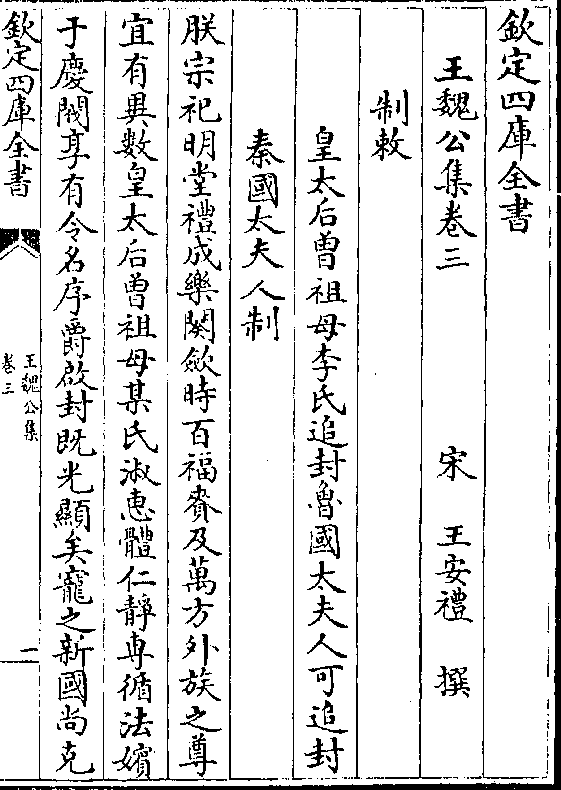 欽定四庫全書
王魏公集卷三
宋　王安禮　撰
制敕
皇太后曾祖母李氏追封魯國太夫人可追封
秦國太夫人制
朕宗祀明堂禮成樂闋斂時百福賚及萬方外族之尊
宜有異數皇太后曾祖母某氏淑惠體仁靜專循法嬪
于慶閥享有令名序爵啟封既光顯矣寵之新國尚克
欽定四庫全書
王魏公集
卷三
一